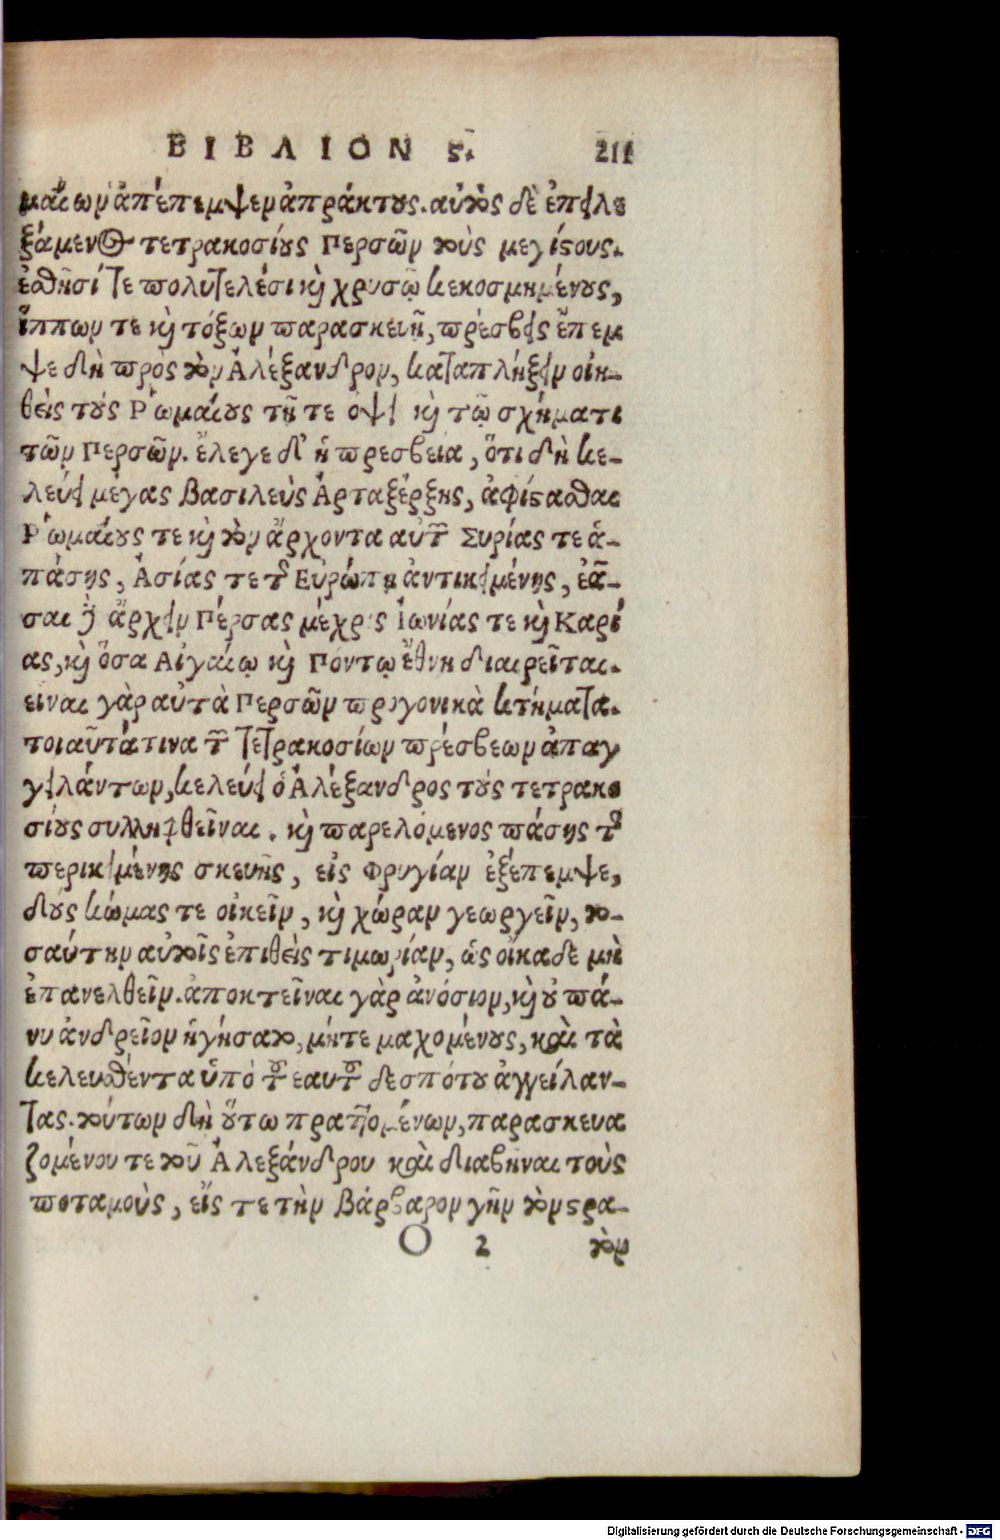 ΒΙΒΛΙΟΝ ϛ. 211
μαίων ἀπέπεμψεν ἀπράκτους. αὐτὸς δὲ ἐπιλε
ξάμενος τετρακοσίους Περσῶν τοὺς μεγίστους.
ἐσθῆσί τε πολυτελέσι καὶ χρυσῷ κεκοσμημένους,
ἵππων τε καὶ τόξων παρασκευῇ, πρέσβεις ἔπεμ
ψε δὴ πρὸς τὸν Ἀλέξανδρον, καταπλήξειν οἰη-
θεὶς τοὺς Ῥωμαίους τῇ τε ὄψει καὶ τῷ σχήματι
τῶν Περσῶν. ἔλεγε δ' ἡ πρεσβεία, ὅτι δὴ κε-
λεύει μέγας βασιλεὺς Ἀρταξέρξης, ἀφίστασθαι
Ῥωμαίους τε καὶ τὸν ἄρχοντα αὐτῶν Συρίας τε ἁ-
πάσης, Ἀσίας τε τῆς Εὐρώπῃ ἀντικειμένης, ἐᾶ-
σαι δὲ ἄρχειν Πέρσας μέχρις Ἰωνίας τε καὶ Καρί
ας, καὶ ὅσα Αἰγαίῳ καὶ Πόντῳ ἔθνη διαιρεῖται.
εἶναι γὰρ αὐτὰ Περσῶν προγονικὰ κτήματα.
τοιαῦτά τινα τῶν τετρακοσίων πρέσβεων ἀπαγ
γειλάντων, κελεύει ὁ Ἀλέξανδρος τοὺς τετρακο
σίους συλληφθεῖναι. καὶ παρελόμενος πάσης τῆς
περικειμένης σκευῆς, εἰς Φρυγίαν ἐξέπεμψε,
δοὺς κώμας τε οἰκεῖν, καὶ χώραν γεωργεῖν, το-
σαύτην αὐτοῖς ἐπιθεὶς τιμωρίαν, ὡς οἴκαδε μὴ
ἐπανελθεῖν. ἀποκτεῖναι γὰρ ἀνόσιον, καὶ οὐ πά-
νυ ἀνδρεῖον ἡγήσατο, μήτε μαχομένους, καὶ τὰ
κελευσθέντα ὑπὸ τοῦ ἑαυτῶν δεσπότου ἀγγείλαν-
τας. τούτων δὴ οὕτω πραττομένων, παρασκευα
ζομένου τε τοῦ Ἀλεξάνδρου καὶ διαβῆναι τοὺς
ποταμοὺς, εἴς τε τὴν βάρβαρον γῆν τὸν στρα-
O 2 τὸν
Digitalisierung gefördert durch die Deutsche Forschungsgemeinschaft - DFG